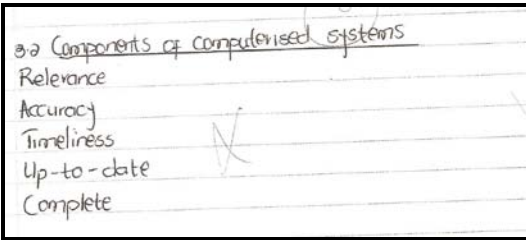 3.2 Components of computerised systems
Relevance
Accuracy
Timeliness
Up-to-date
Complete